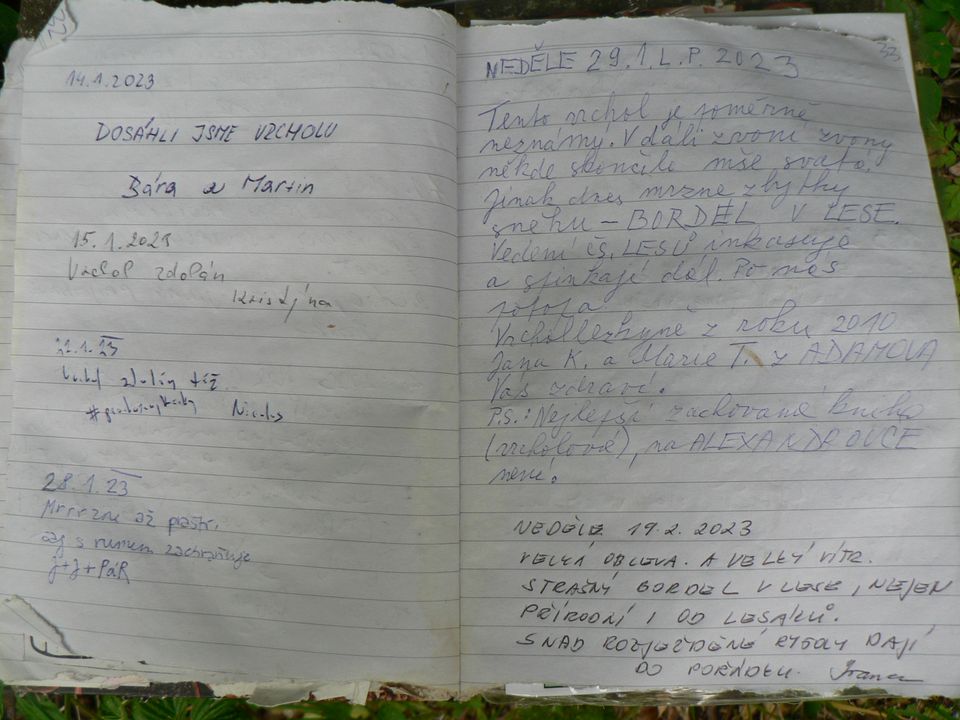 14.1.2023
DOSÁHLI JSME VRCHOLU
Bára a Martin
15.1.2023
Vrchol zdolán
Kristýna
22.1.23
též
Nicolas
28.1.23
Mrrrzne až praští,
čaj s rumem zachraňuje
J+J+PáR
33
NEDĚLE 29.1.L.P. 2023
Tento vrchol je poměrně
neznámý. V dáli zvoní zvony
někde skončila mše svatá.
Jinak dnes mrzne zbytky
sněhu – BORDEL V LESE.
Vedení čs. LESŮ inkasuje
a šinkají dál. Po nás
potopa.
Vrchollezkyně z roku 2010
Jana K. a Marie T. z ADAMOVA
Vás zdraví.
P.S.: Nejlepší zachované kniha
(vrcholová), na ALEXANDROVCE
není!
NEDĚLE 19.2.2023
VELKÁ OBLEVA. A VELKÝ VÍTR.
STRAŠNÝ BORDEL V LESE, NEJEN
PŘÍRODNÍ I OD LESÁKŮ.
SNAD ROZJEŽDĚNÉ DAJÍ
DO POŘÁDKU.